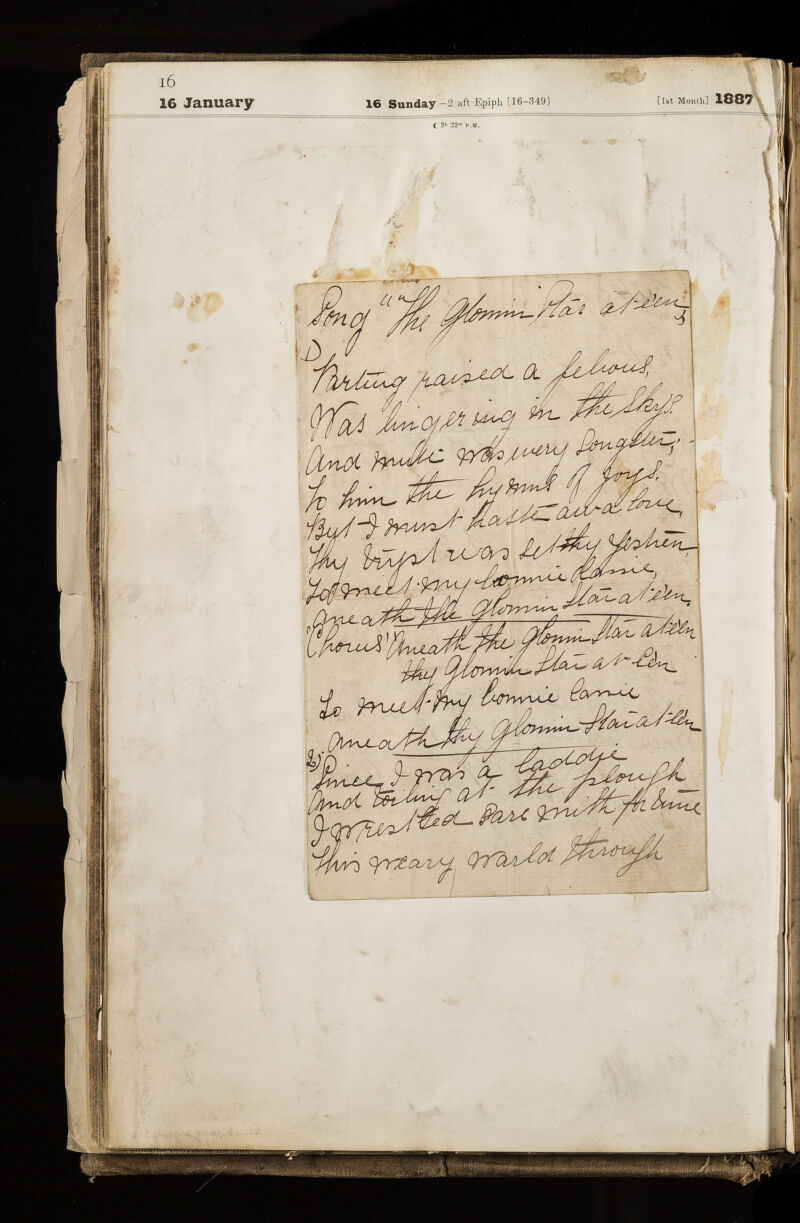 16
16 January 16 Sunday – 2 aft Epiph [16-349] [1st Month] 1887
☾ 3h 22m P.M.
Song "" The Glomin Star at-e'en
1) Parting raised a
Was lingering in the Skys.
And mute was every Songster;
To him the hymns of joys.
But I must haste awa love,
Thy tryst was set thy Yestreen
To meet my bonnie Lassie,
Aneath the glomin Star at e'en.
"Chorus" Aneath the glomin Star at e'en
thy Glomin Star at e'en
To meet my bonnie lassie
Aneath thy glomin Star at-e'en
2) Since I was a laddie
And toiling at the plough
I wrestled sare with fortune
This weary warld through